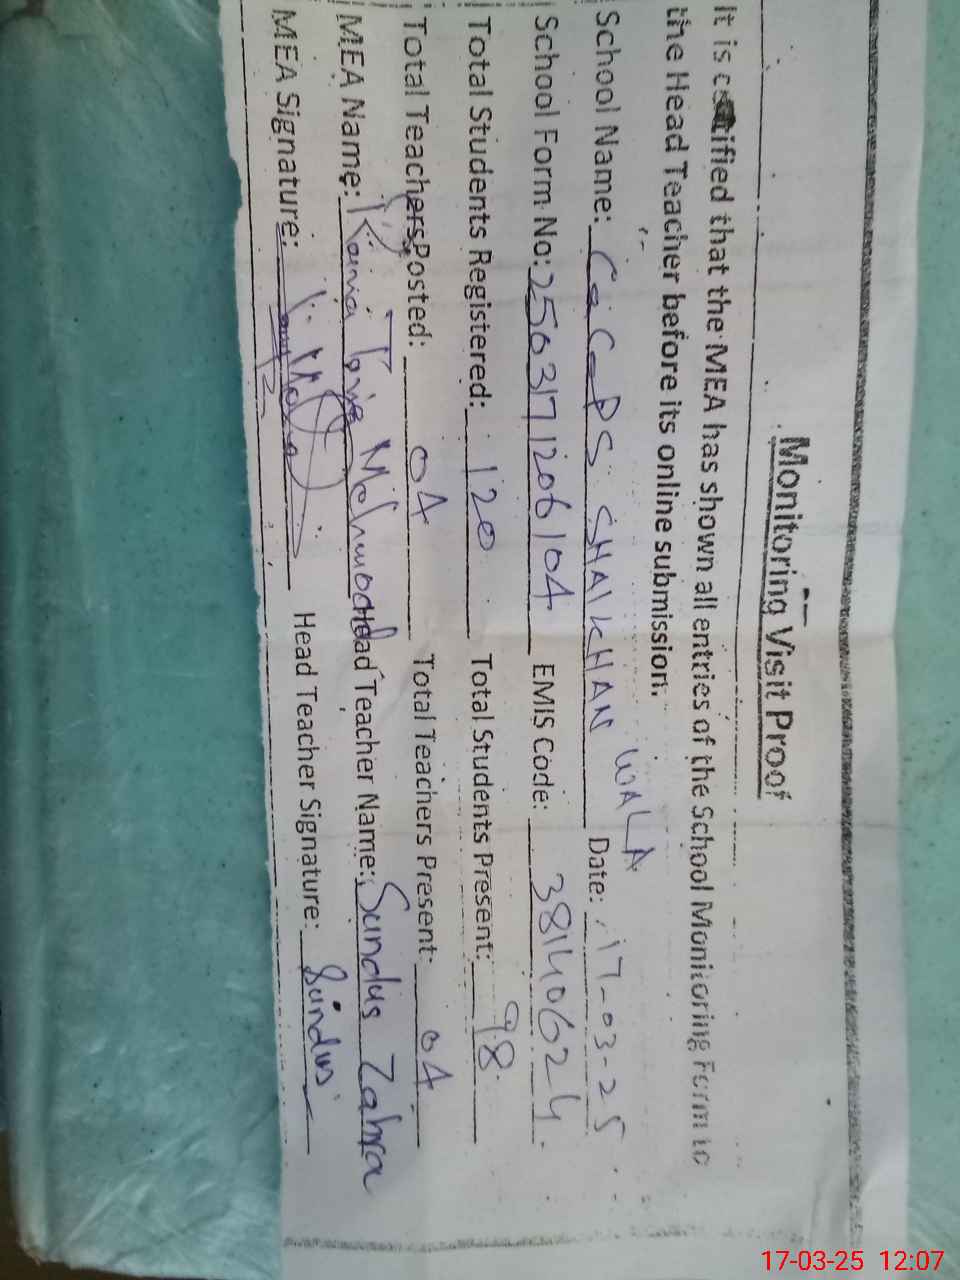 Monitoring Visit Proof
It is certified that the MEA has shown all entries of the School Monitoring Form to
the Head Teacher before its online submission.
School Name: G.G.P.S. SHAIKHAN WALA Date: 17-03-25
School Form No: 2503171206104 EMIS Code: 38140624
Total Students Registered: 120 Total Students Present: 98
Total Teachers Posted: 04 Total Teachers Present: 04
MEA Name: Tariq Mehmood Head Teacher Name: Sundus Zahra
MEA Signature: Head Teacher Signature: Sundus
17-03-25 12:07